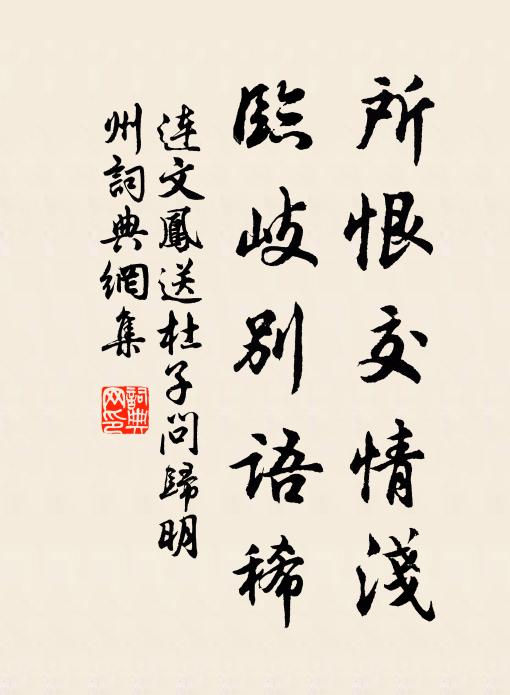 所恨交情淺
臨岐別語稀
連文鳳送杜子問歸明
州詞典網集
詞典网印